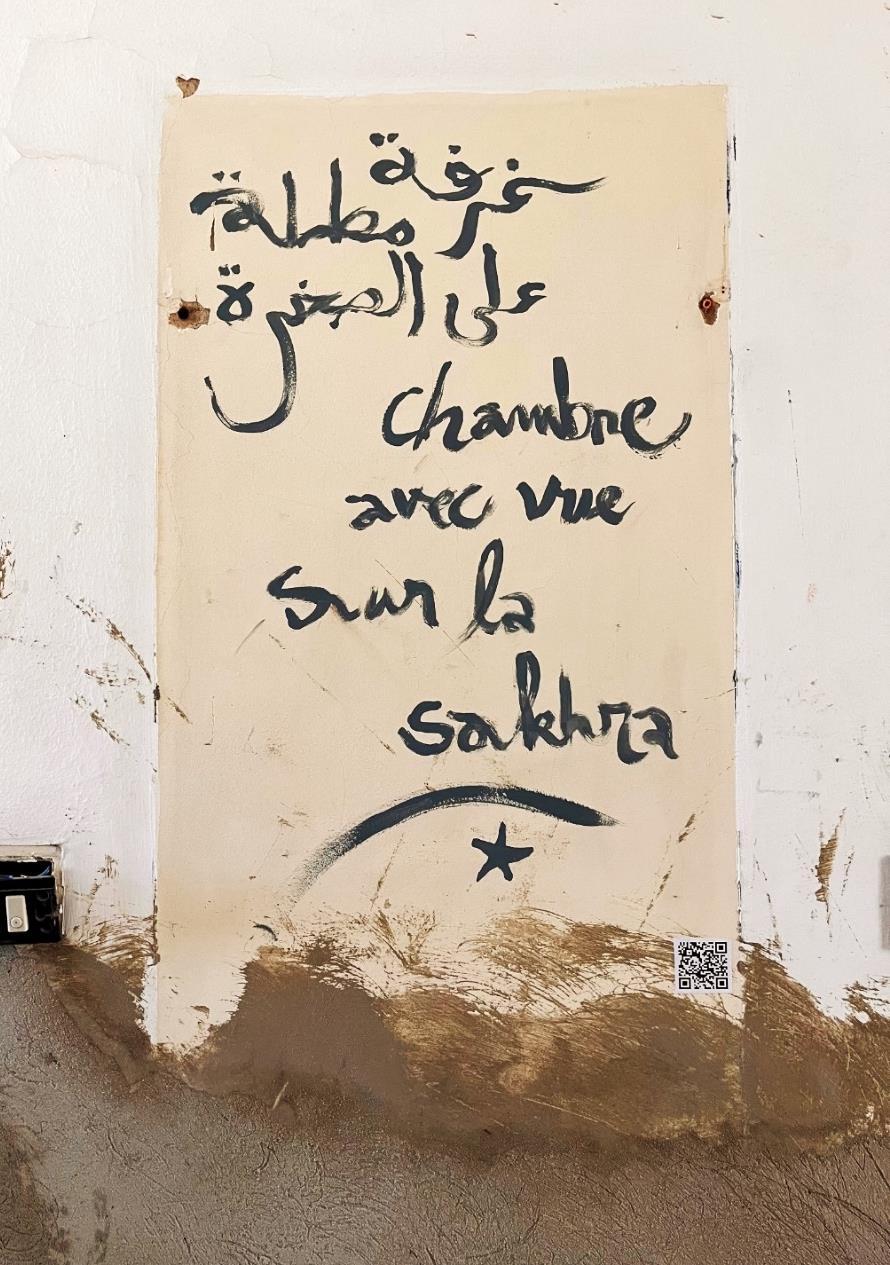 غرفة
مطلة
على الصخرة
chambre
avec vue
sur la
sakhra